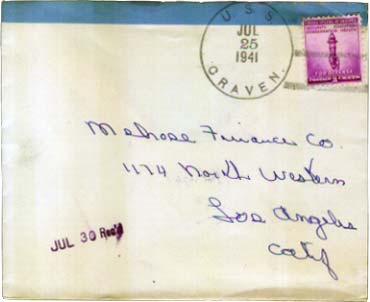 U S S
JUL
25
1941
CRAVEN.
FOR DEFENSE
Melrose Finance Co.
1174 North Western
Los Angeles
Calif
JUL 30 Rec'd